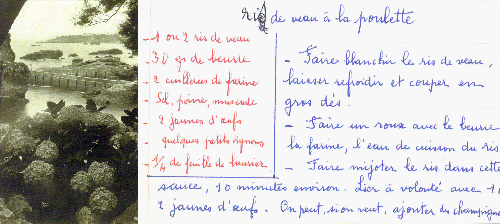 ris de veau à la poulette
- 1 ou 2 ris de veau
- 30 gr de beurre
- 2 cuillères de farine
- Sel, poivre, muscade
- 2 jaunes d'œufs
- quelques petits oignons
- 1/4 de feuille de laurier
- Faire blanchir le ris de veau,
laisser refroidir et couper en
gros dés.
- Faire un roux avec le beurre
la farine, l'eau de cuisson du ris
- Faire mijoter le ris dans cette
sauce, 10 minutes environ. Lier à volonté avec 1 o
2 jaunes d'œufs. On peut, si on veut, ajouter des champign